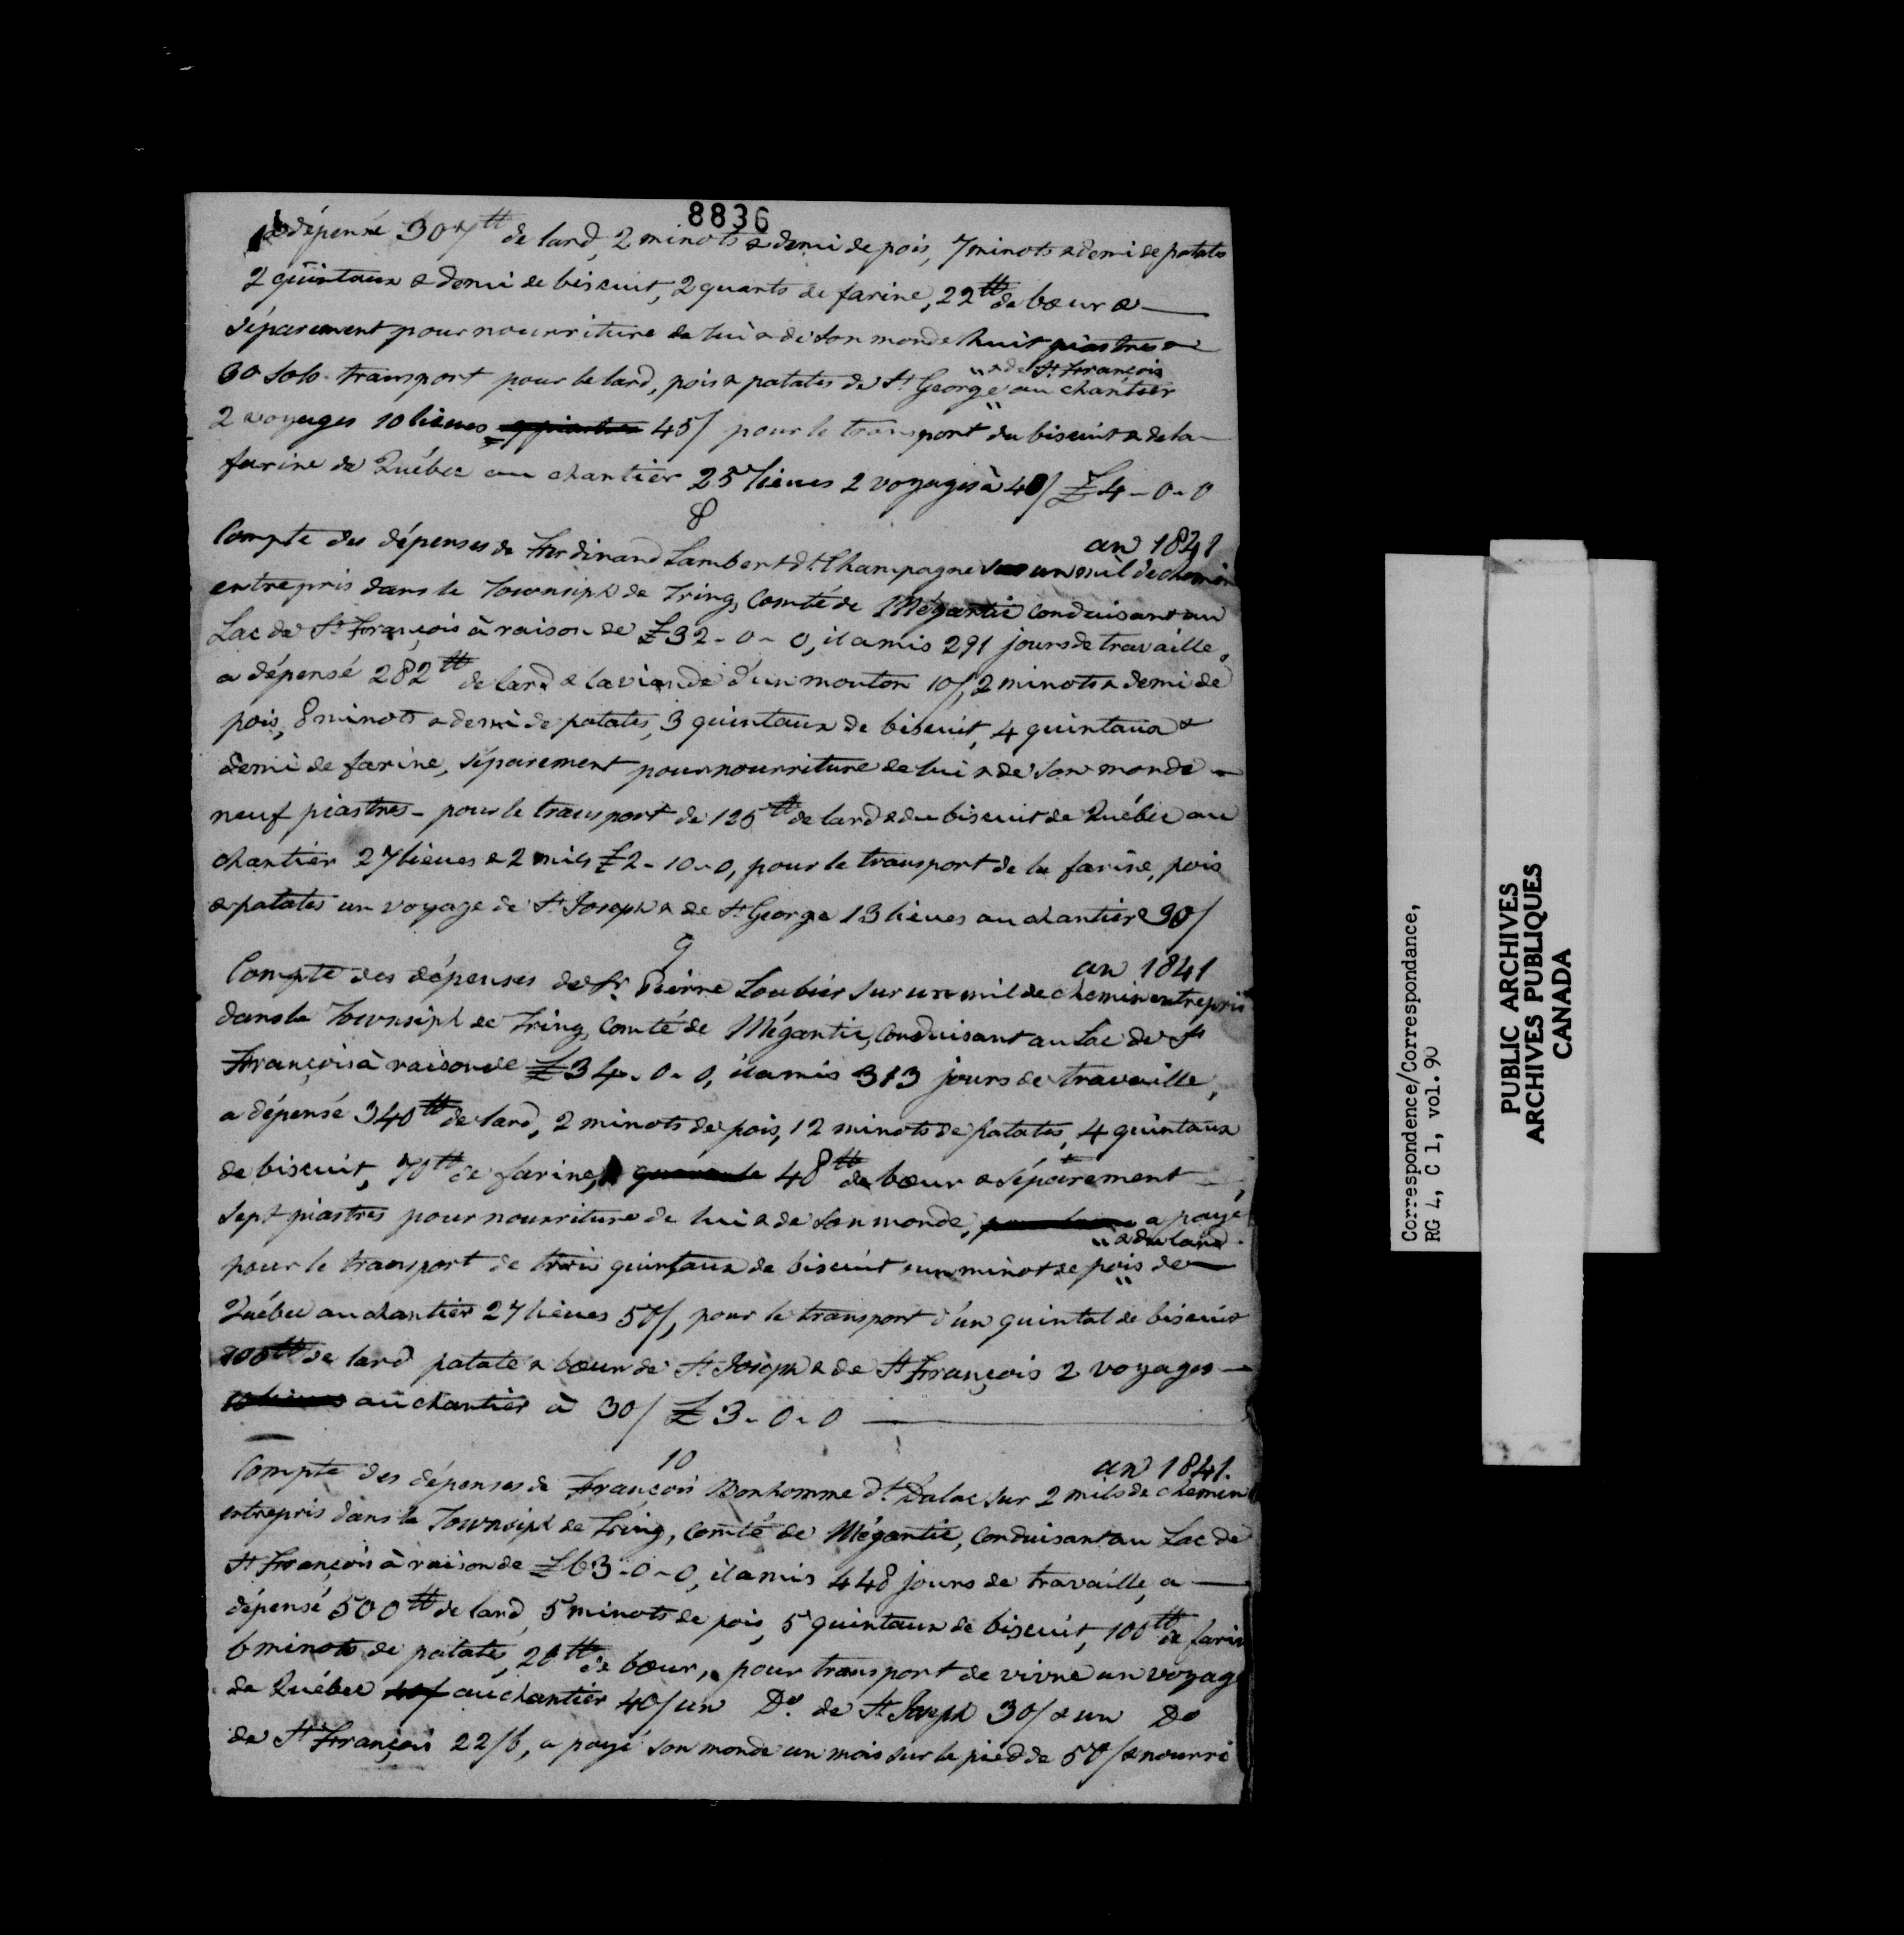 8836
a dépensé 307 ₶ de lard, 2 minots & demi de pois, 7 minots & demi de patates
2 quintaux & demi de biscuit, 2 quarts de farine, 22 ₶ de bœur &
séparement pour nourriture de lui & de son monde huit piastres &
30 sols. transport pour le lard, pois & patates de St George " & de St François " au chantier
2 voyages 10 lieues 45/ pour le transport du biscuit & de la
farine de Québec au chantier 25 lieues 2 voyages à 40/ £4-0-0
8
an 1841
Compte des dépenses de Ferdinand Lambert dt. Champagne sur un mil de chemin
entrepris dans le Townsiph de Tring, Comté de Mégantic conduisant au
Lac de St François à raison de £32-0-0, il a mis 291 jours de travaille,
a dépensé 282 ₶ de lard & la viande d'un mouton 10/, 2 minots & demi de
pois, 8 minots & demi de patates, 3 quintaux de biscuit, 4 quintaux &
demi de farine, séparement pour nourriture de lui & de son monde
neuf piastres - pour le transport de 125 ₶ de lard & du biscuit de Québec au
chantier 27 lieues & 2 mils £2-10-0, pour le transport de la farine, pois
& patates un voyage de St Joseph & de St George 13 lieues au chantier 30/
9
an 1841
Compte des dépenses de Sr. Pierre Loubier sur un mil de chemin entrepris
dans le Townsiph de Tring, Comté de Mégantic, conduisant au Lac de St
François à raison de £34-0-0, il a mis 313 jours de travaille,
a dépensé 340 ₶ de lard, 2 minots de pois, 12 minots de patates, 4 quintaux
de biscuit, 70 ₶ de farine, quarante 48 ₶ de bœur & séparement
sept piastres pour nourriture de lui & de son monde, a payé
pour le transport de trois quintaux de biscuit un minot de pois " & du lard " de
Québec au chantier 27 lieues 50/, pour le transport d'un quintal de biscuit
100 ₶ de lard patate & bœur de St Joseph & de St François 2 voyages
10 lieues au chantier à 30/ £3-0-0
10
an 1841.
Compte des dépenses de François Bonhomme dt. Dulac sur 2 mils de chemin
entrepris dans le Townsiph de Tring, Comté de Mégantic, conduisant au Lac de
St François à raison de £63-0-0, il a mis 448 jours de travaille, a
dépensé 500 ₶ de lard, 5 minots de pois, 5 quintaux de biscuit, 100 ₶ de farin
6 minots de patates, 20 ₶ de bœur, pour transport de vivre un voyage
de Québec au chantier 40/ un Do. de St Joseph 30/ & un Do
de St François 22/6, a payé son monde un mois sur le pied de 50/ & nourri
Correspondence/Correspondance,
RG 4, C 1, vol. 90
PUBLIC ARCHIVES
ARCHIVES PUBLIQUES
CANADA